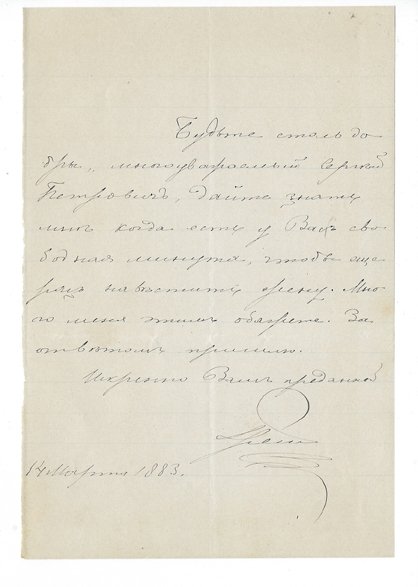 Будьте столь до
бры, многоуважаемый Сергѣй
Петровичъ, дайте знать
мнѣ когда есть у Васъ сво
бодная минута, чтобы еще
разъ навѣстить жену. Мно
го меня этимъ обяжете. За
отвѣтомъ пришлю.
Искренно Вамъ преданный
14 Марта 1883.